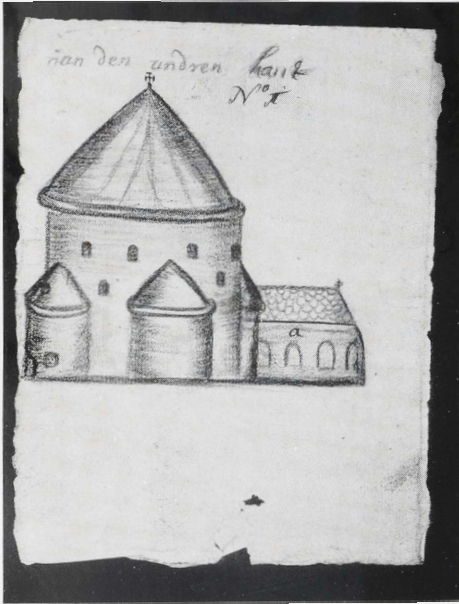 nan den andren hant
N° 1
a